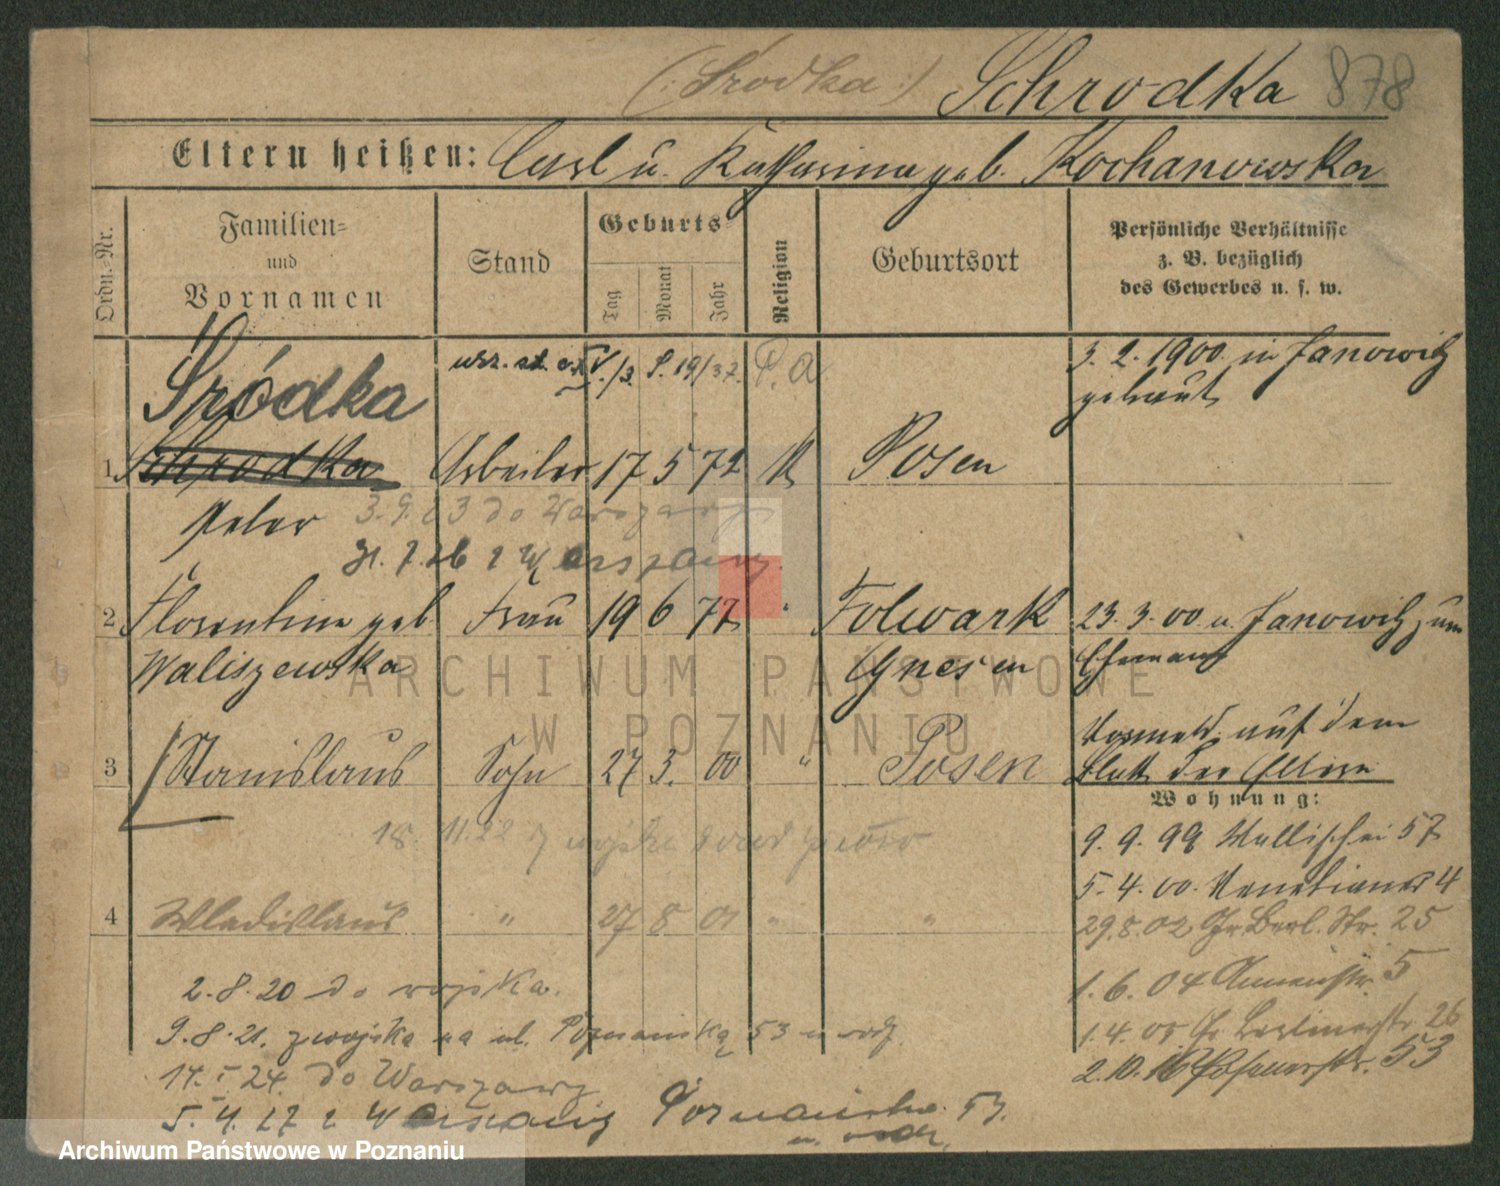 (: Środka :) Schrodka 878
Eltern heißen: Carl u. Katharina geb. Kochanowska
Ordn.-Nr.
Familien-
und
Vornamen
Stand
Geburts-
Tag
Monat
Jahr
Religion
Geburtsort
Persönliche Verhältnisse
z. B. bezüglich
des Gewerbes u. s. w.
Śródka
P. a
3. 2. 1900. in Janowitz
getraut
1. Schrodka Arbeiter 17 5 72 k Posen
Peter 3.9.23 do Warszawy
31.7.26 z Warszawy.
2 Florentine geb. Frau 19 6 77 " Folwark 23. 3. 00 n. Janowitz zum
Waliszewska Gnesen Ehemann
3 Stanislaus Sohn 27 3. 00 " Posen
Vermerkt auf dem
Blatt der Eltern
Wohnung:
18. 11.22 z wojska
9. 9. 99 Wallischei 57
5. 4. 00. Venetianer 4
4 Wladislaus " 27 8 01 " "
29.8.02 Gr. Berl. Str. 25
1. 6. 04 5
1.4.05 Gr. Berlinerstr. 26
2.10.10 Posenerstr. 53
2.8.20 do wojska.
9.8.21. z wojska na ul. Poznańską 53 u rodz.
14. I. 24. do Warszawy
5. 4. 27 z Warszawy Poznańska 53.
u. rodz.
ARCHIWUM PAŃSTWOWE
W POZNANIU
Archiwum Państwowe w Poznaniu